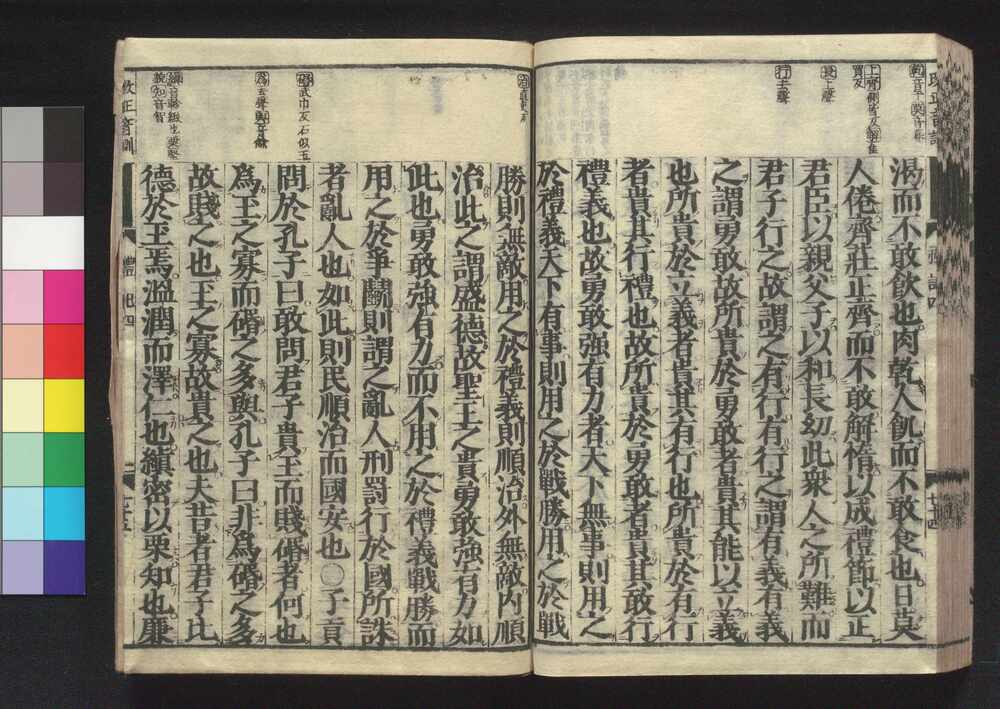 渇而不敢飲也肉乾人飢而不敢食也日莫
人倦齊莊正齊而不敢解惰以成禮節以正
君臣以親父子以和長幼此衆人之所難而
君子行之故謂之有行有行之謂有義有義
之謂勇敢故所貴於勇敢者貴其能以立義
也所貴於立義者貴其有行也所貴於有行
者貴其行禮也故所貴於勇敢者貴其敢行
禮義也故勇敢强有力者天下無事則用之
於禮義天下有事則用之於戰勝用之於戰
勝則無敵用之於禮義則順治外無敵内順
治此之謂盛德故聖王之貴勇敢強有力如
此也勇敢強有力而不用之於禮義戰勝而
用之於爭鬭則謂之亂人刑罰行於國所誅
者亂人也如此則民順治而國安也〇子貢
問於孔子曰敢問君子貴玉而賤碈者何也
爲玉之寡而碈之多與孔子曰非爲碈之多
故賤之也玉之寡故貴之也夫昔者君子比
德於玉焉溫潤而澤仁也縝密以栗知也廉
行去聲
長上聲
禮記四